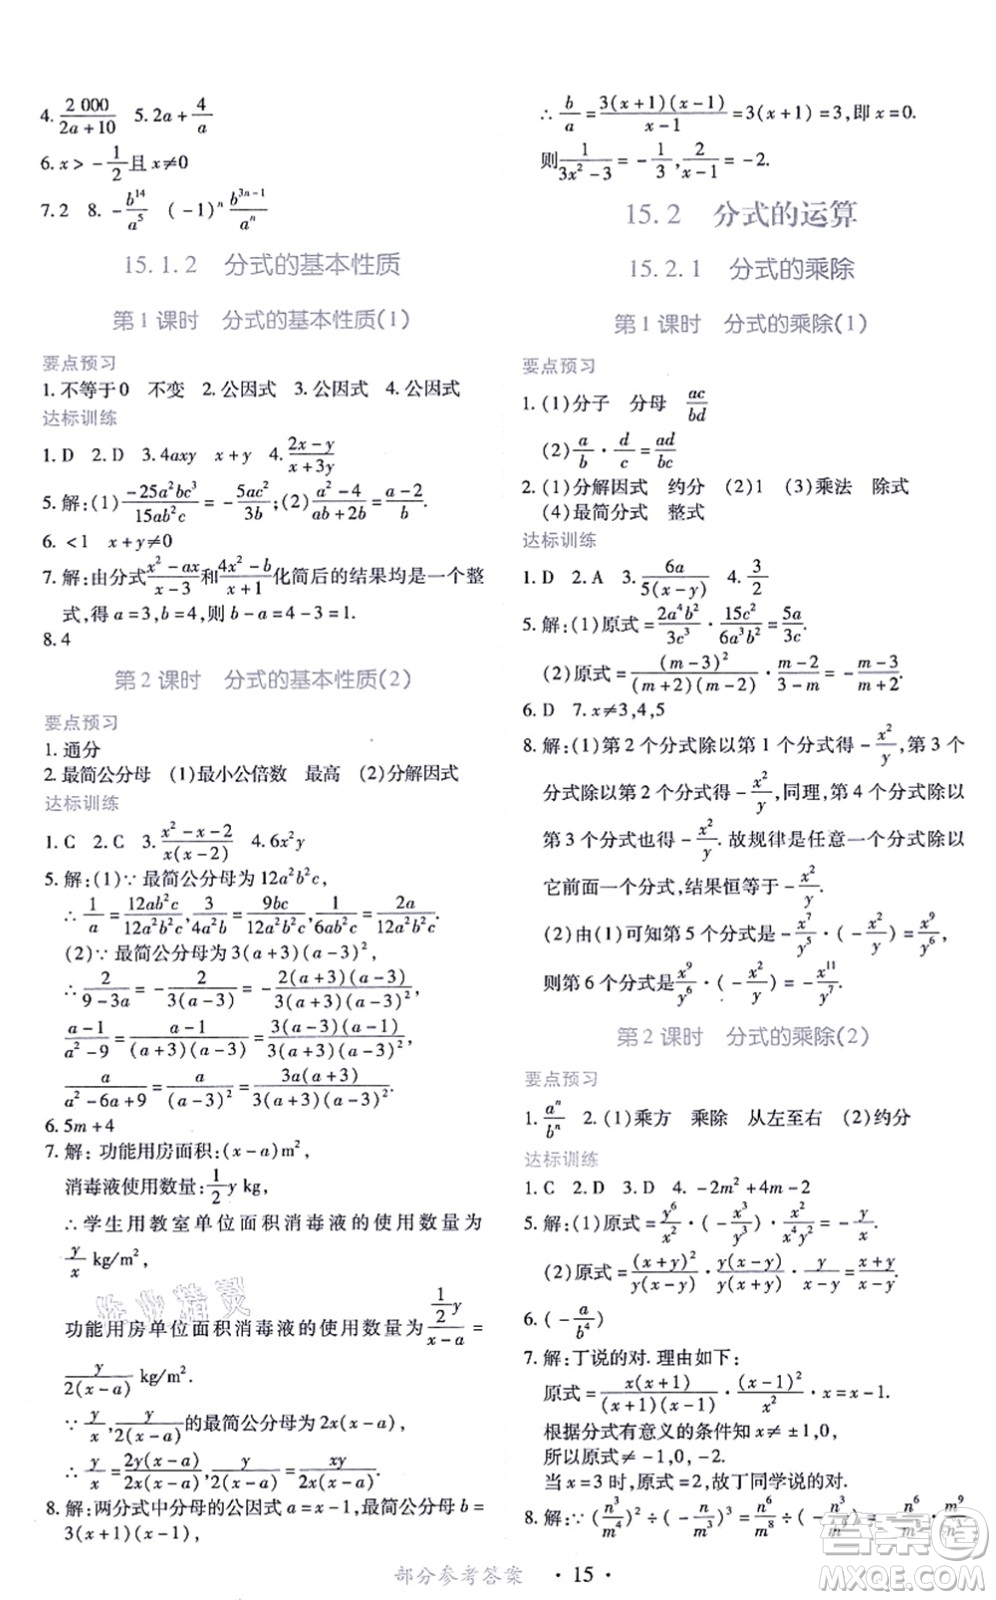 4. $\frac{2\,000}{2a+10}$ 5. $2a+\frac{4}{a}$
6. $x>-\frac{1}{2}$且 $x≠0$
7. 2 8. $-\frac{b^{14}}{a^5}$ $(-1)^n\frac{b^{3n-1}}{a^n}$
15.1.2 分式的基本性质
第1课时 分式的基本性质(1)
要点预习
1. 不等于0 不变 2. 公因式 3. 公因式 4. 公因式
达标训练
1. D 2. D 3. 4axy x+y 4. $\frac{2x-y}{x+3y}$
5. 解:(1)$\frac{-25a^2bc^3}{15ab^2c}=-\frac{5ac^2}{3b}$;(2)$\frac{a^2-4}{ab+2b}=\frac{a-2}{b}$.
6. <1 x+y≠0
7. 解:由分式$\frac{x^2-ax}{x-3}$和$\frac{4x^2-b}{x+1}$化简后的结果均是一个整
式,得 a=3,b=4,则 b-a=4-3=1.
8. 4
第2课时 分式的基本性质(2)
要点预习
1. 通分
2. 最简公分母 (1)最小公倍数 最高 (2)分解因式
达标训练
1. C 2. C 3. $\frac{x^2-x-2}{x(x-2)}$ 4. $6x^2y$
5. 解:(1)∵最简公分母为 $12a^2b^2c$,
∴$\frac{1}{a}=\frac{12ab^2c}{12a^2b^2c}$,$\frac{3}{4a^2b}=\frac{9bc}{12a^2b^2c}$,$\frac{1}{6ab^2c}=\frac{2a}{12a^2b^2c}$.
(2)∵最简公分母为 $3(a+3)(a-3)^2$,
∴$\frac{2}{9-3a}=-\frac{2}{3(a-3)}=-\frac{2(a+3)(a-3)}{3(a+3)(a-3)^2}$,
$\frac{a-1}{a^2-9}=\frac{a-1}{(a+3)(a-3)}=\frac{3(a-3)(a-1)}{3(a+3)(a-3)^2}$,
$\frac{a}{a^2-6a+9}=\frac{a}{(a-3)^2}=\frac{3a(a+3)}{3(a+3)(a-3)^2}$.
6. 5m+4
7. 解:功能用房面积:$(x-a)m^2$,
消毒液使用数量:$\frac{1}{2}y$ kg,
∴学生用教室单位面积消毒液的使用数量为
$\frac{y}{x}$ kg/m$^2$,
功能用房单位面积消毒液的使用数量为$\frac{\frac{1}{2}y}{x-a}=$
$\frac{y}{2(x-a)}$ kg/m$^2$.
∵$\frac{y}{x}$,$\frac{y}{2(x-a)}$的最简公分母为 $2x(x-a)$,
∴$\frac{y}{x}=\frac{2y(x-a)}{2x(x-a)}$,$\frac{y}{2(x-a)}=\frac{xy}{2x(x-a)}$.
8. 解:两分式中分母的公因式 a=x-1,最简公分母 b=
3(x+1)(x-1),
∴$\frac{b}{a}=\frac{3(x+1)(x-1)}{x-1}=3(x+1)=3$,即 x=0.
则$\frac{1}{3x^2-3}=-\frac{1}{3}$,$\frac{2}{x-1}=-2$.
15.2 分式的运算
15.2.1 分式的乘除
第1课时 分式的乘除(1)
要点预习
1. (1)分子 分母 $\frac{ac}{bd}$
(2)$\frac{a}{b}·\frac{d}{c}=\frac{ad}{bc}$
2. (1)分解因式 约分 (2)1 (3)乘法 除式
(4)最简分式 整式
达标训练
1. D 2. A 3. $\frac{6a}{5(x-y)}$ 4. $\frac{3}{2}$
5. 解:(1)原式$=\frac{2a^4b^2}{3c^3}·\frac{15c^2}{6a^3b^2}=\frac{5a}{3c}$.
(2)原式$=\frac{(m-3)^2}{(m+2)(m-2)}·\frac{m-2}{3-m}=-\frac{m-3}{m+2}$.
6. D 7. x≠3,4,5
8. 解:(1)第2个分式除以第1个分式得$-\frac{x^2}{y}$,第3个
分式除以第2个分式得$-\frac{x^2}{y}$,同理,第4个分式除以
第3个分式也得$-\frac{x^2}{y}$. 故规律是任意一个分式除以
它前面一个分式,结果恒等于$-\frac{x^2}{y}$.
(2)由(1)可知第5个分式是$-\frac{x^7}{y^5}·(-\frac{x^2}{y})=\frac{x^9}{y^6}$,
则第6个分式是$\frac{x^9}{y^6}·(-\frac{x^2}{y})=-\frac{x^{11}}{y^7}$.
第2课时 分式的乘除(2)
要点预习
1. $\frac{a^n}{b^n}$ 2. (1)乘方 乘除 从左至右 (2)约分
达标训练
1. C 2. D 3. D 4. $-2m^2+4m-2$
5. 解:(1)原式$=\frac{y^6}{x^2}·(-\frac{x^3}{y^3})·\frac{x^2}{x^4y^2}=-\frac{y}{x}$.
(2)原式$=\frac{(x+y)^2}{y(x-y)}·\frac{y(x-y)}{y(x+y)}·\frac{y}{x-y}=\frac{x+y}{x-y}$.
6. $(-\frac{a}{b^4})$
7. 解:丁说的对. 理由如下:
原式$=\frac{x(x+1)}{(x+1)(x-1)}·\frac{(x-1)^2}{x^2}·x=x-1$.
根据分式有意义的条件知 x≠±1,0,
所以原式≠-1,0,-2.
当 x=3 时,原式=2,故丁同学说的对.
8. 解:∵$(\frac{n^3}{m^4})^2÷(-\frac{n}{m^3})^3=\frac{n^6}{m^8}÷(-\frac{n^3}{m^9})=-\frac{n^6}{m^8}·\frac{m^9}{n^3}=$
部分参考答案 · 15 ·
作业精灵
答案圈
MXQE.COM